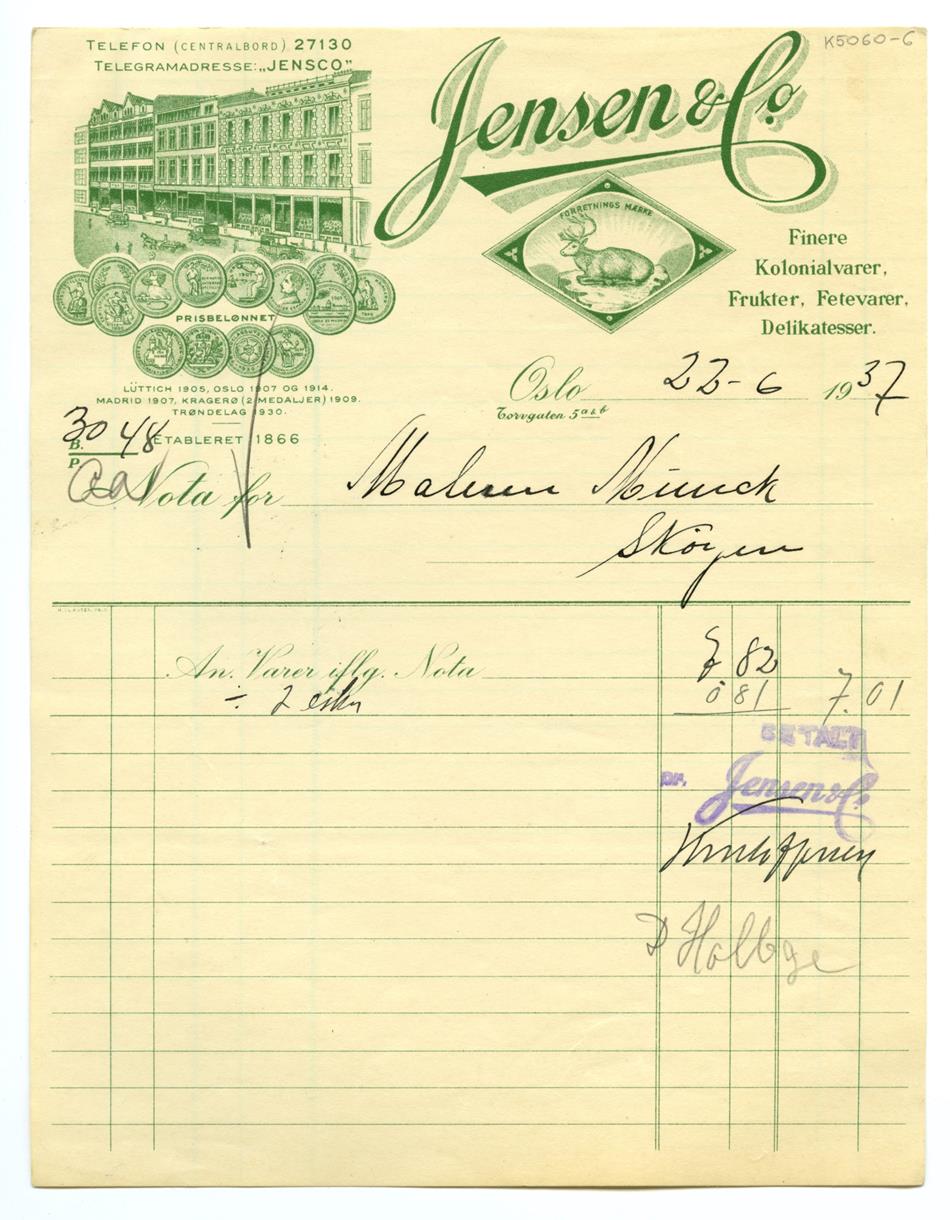 K5060-6
TELEFON (CENTRALBORD) 27130
TELEGRAMADRESSE: „JENSCO”
Jensen & Co.
FORRETNINGS MÆRKE
Finere
Kolonialvarer,
Frukter, Fetevarer,
Delikatesser.
PRISBELØNNET
LÜTTICH 1905, OSLO 1907 OG 1914.
MADRID 1907, KRAGERØ (2 MEDALJER) 1909.
TRØNDELAG 1930.
ETABLERET 1866
Oslo 22-6 1937
Torvgaten 5 a & b
B. 3048
P.
Nota for Maleren Munck
Skøyen
An. Varer iflg. Nota 7 82
÷ 2 esker 0 81 7.01
BETALT
pr. Jensen & Co.